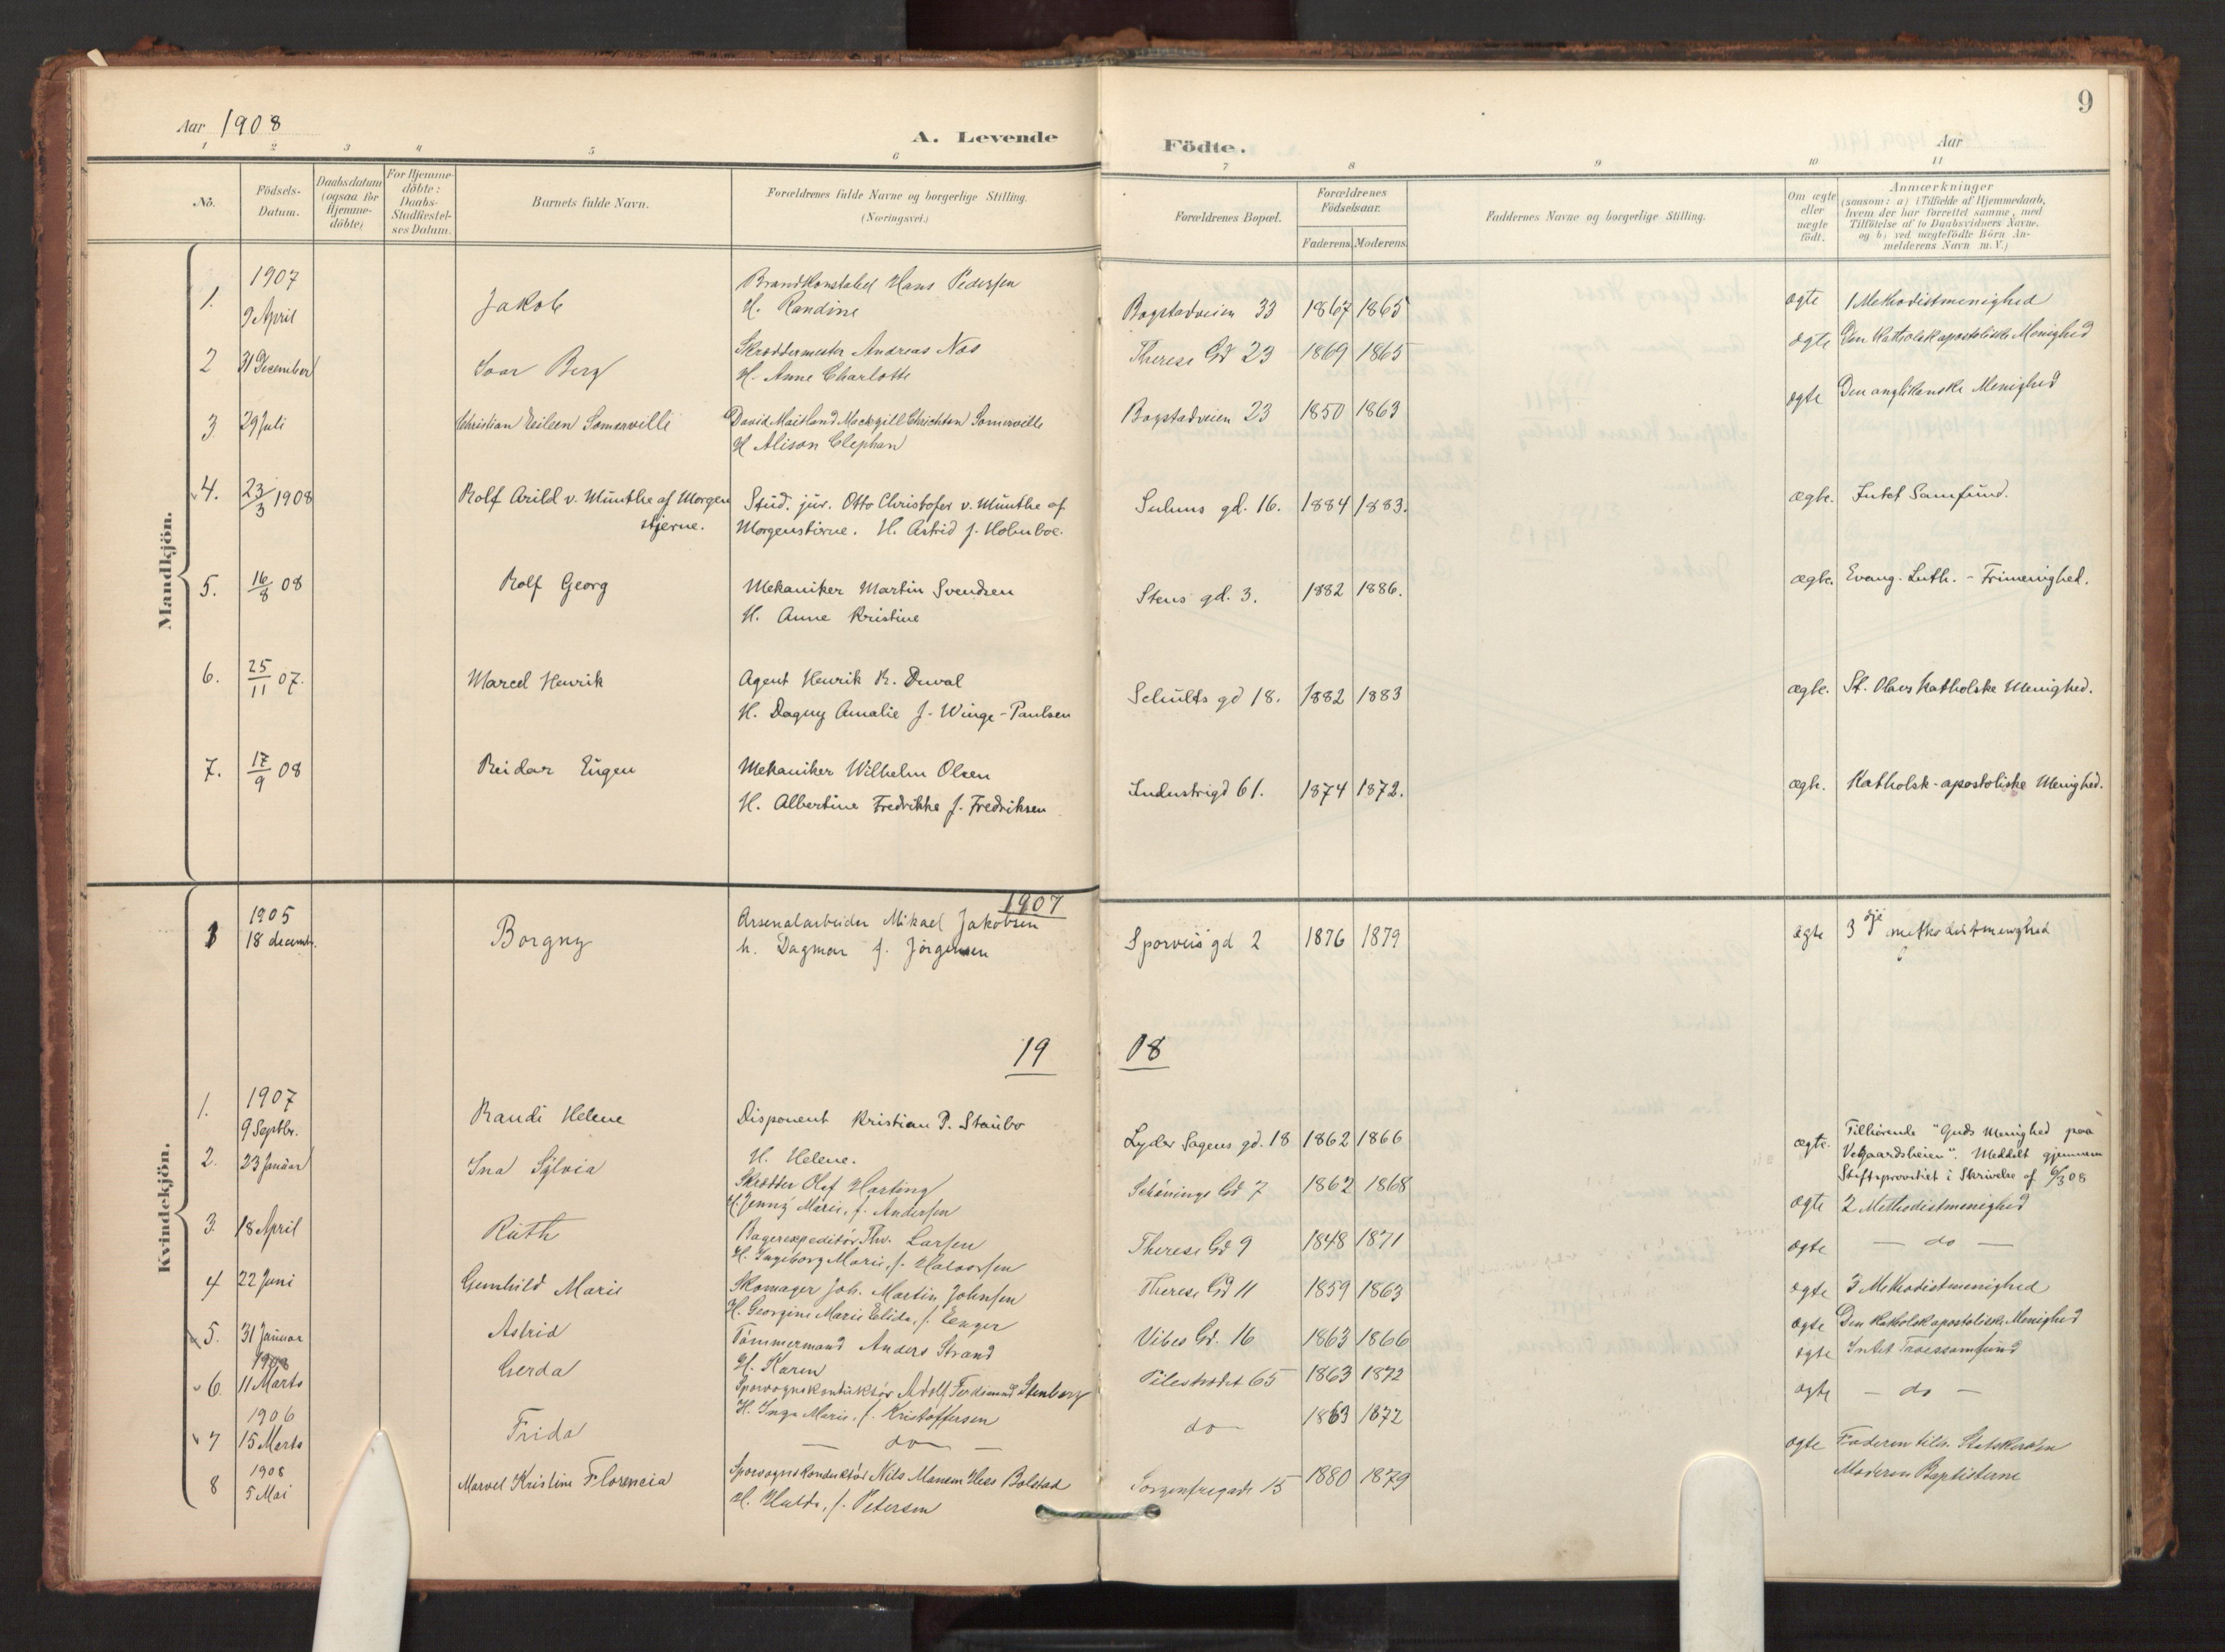 Aar 1908
A. Levende
Födte.
Aar
9
1 2 3 4 5 6 7 8 9 10 11
No.
Födsels-
Datum.
Daabsdatum
(ogsaa for
Hjemme-
döbte)
For Hjemme-
döbte:
Daabs-
Stadfæstel-
ses Datum.
Barnets fulde Navn.
Forældrenes fulde Navne og borgerlige Stilling.
(Næringsvei.)
Forældrenes Bopæl.
Forældrenes
Födselsaar.
Faderens. Moderens.
Faddernes Navne og borgerlige Stilling.
Om ægte
eller
uægte
født.
Anmærkninger
(saasom: a) i Tilfælde af Hjemmedaab,
hvem der har forrettet samme, med
Tilføielse af to Daabsvidners Navne.
og b) ved uægtefødte Börn An-
melderens Navn m. V.)
Mandkjön.
1907
1. 9 April Jakob Brandkonstabel Hans Pedersen
H. Randine
Bogstadveien 33 1867 1865 ægte 1 Methodistmenighed
2 31 December Ivar Berg Skræddermester Andreas Næs
H. Anne Charlotte
Therese Gd 23 1869 1865 ægte Den katholsk apostoliske Menighed
3. 29 Juli Christian Eileen Somerville David Maitland Mackgill Chrichton Somerville
H Alison Clephan
Bogstadveien 23 1850 1863 ægte Den anglikanske Menighed
4. 23/3 1908 Rolf Arild v. Munthe af Morgen
stjerne.
Stud. jur. Otto Christofer v. Munthe af
Morgenstierne. H. Astrid f. Holmboe.
Suhms gd. 16. 1884 1883. ægte. Intet Samfund.
5. 16/8 08 Rolf Georg Mekaniker Martin Svendsen
H. Anne Kristine
Stens gd. 3. 1882 1886. ægte. Evang. Luth. - Frimenighed.
6. 25/11 07. Marcel Henrik Agent Henrik R. Duval
H. Dagny Amalie f. Winge-Paulsen
Schults gd 18. 1882 1883 ægte. St. Olavs katholske Menighed.
7. 17/9 08 Reidar Eugen Mekaniker Wilhelm Olsen
H. Albertine Fredrikke f. Fredriksen
Industrigd 61. 1874 1872. ægte. Katholsk-apostoliske Menighed.
Kvindekjön.
1907
1905
1 18 decembr. Borgny Arsenalarbeider Mikael Jakobsen
h. Dagmar f. Jörgensen
Sporveisgd 2 1876 1879 ægte 3dje methodistmenighed
19 08
1907
1. 9 Septbr. Randi Helene Disponent Kristian P. Staubo
H. Helene.
Lyder Sagens gd. 18 1862 1866 ægte. Tilhörende "Guds Menighed paa
Vegaardsheien". Meddelt gjennem
Stiftsprovstiet i Skrivelse af 6/3 08
2. 23 Januar Ina Sylvia Skrædder Olaf Harting
H. Jenny Marie, f. Andersen
Schönings Gd 7 1862 1868 ægte 2 Methodistmenighed
3. 18 April Ruth Bagerexpeditör Thv. Larsen
H. Ingeborg Marie, f. Halvorsen
Therese Gd 9 1848 1871 ægte — do —
4 22 Juni Gunhild Marie Skomager Joh. Martin Johnsen
H. Georgine Marie Elida, f. Eenger
Therese Gd 11 1859 1863 ægte 3 Methodistmenighed
5. 31 Januar Astrid Tömmermand Anders Strand
H. Karen
Vibes Gd. 16 1863 1866 ægte Den katholsk apostolisk. Menighed
6. 11 Marts Gerda Sporvognskonduktör Adolf Ferdinand Stenberg
H. Inga Marie, f. Kristoffersen
Pilestrædet 65 1863 1872 ægte Intet Troessamfund
1906
7 15 Marts Frida — do —
do 1863 1872 ægte — do —
1908
8 5 Mai Marvel Kristine Florencia Sporvognskonduktör Nils Hess Bolstad
H. Hulda, f. Petersen
Sorgenfrigade 15 1880 1879 ægte Faderen tilh. Statskirken
Moderen Baptisterne